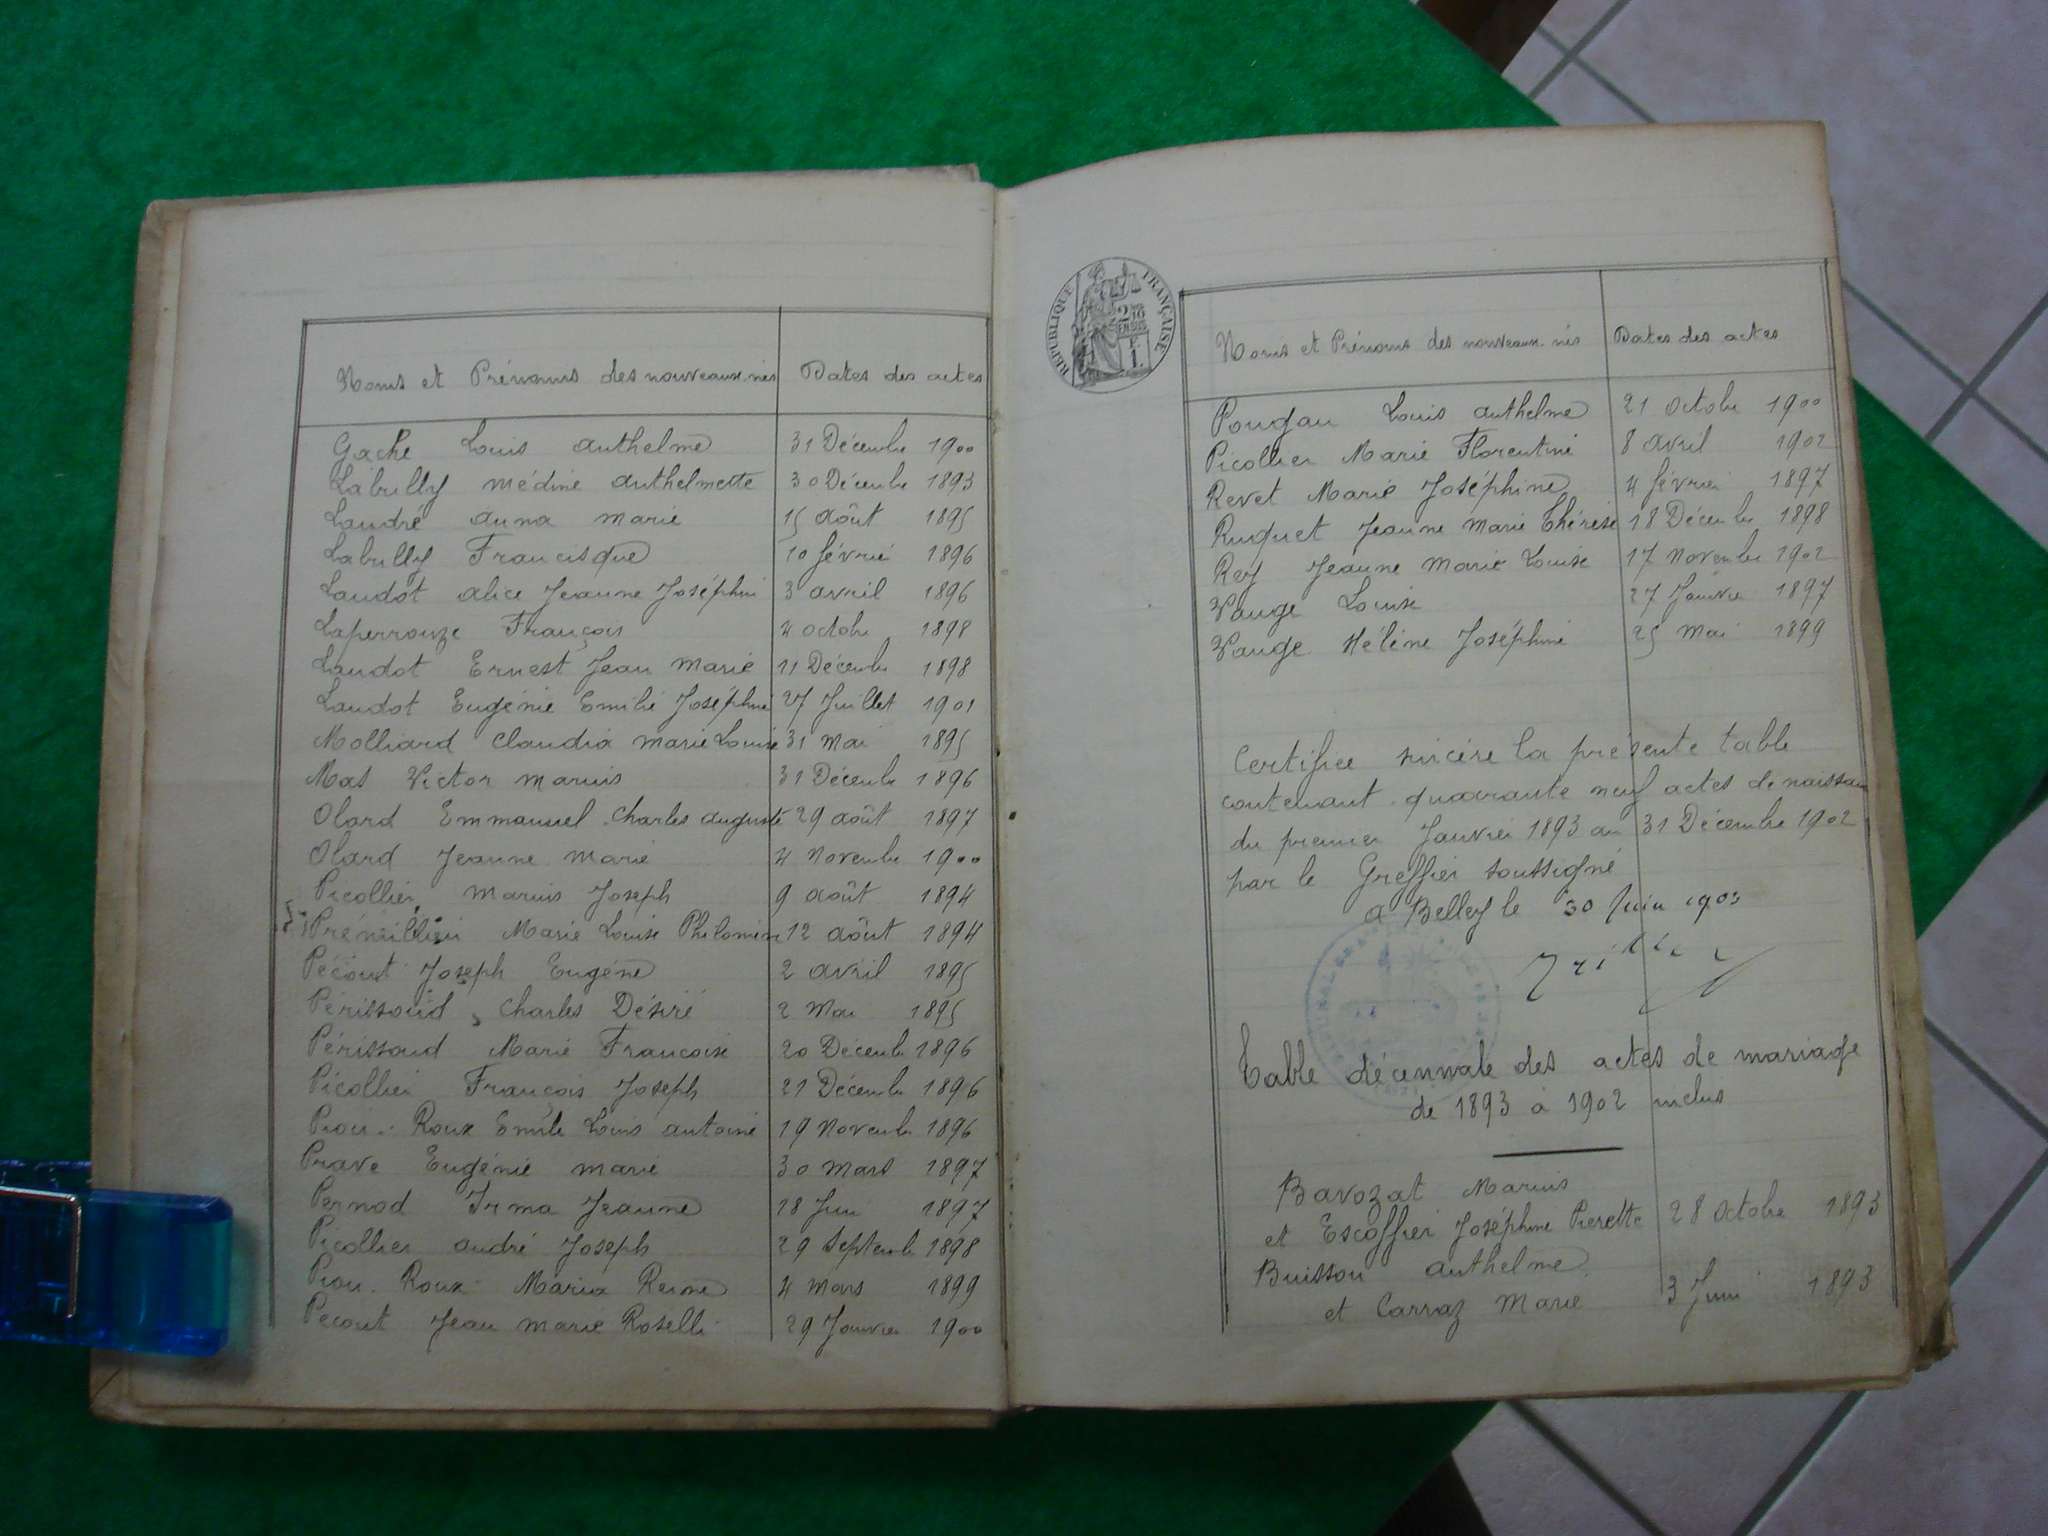 Noms et Prénoms des nouveaux-nés Dates des actes
Gache Louis Anthelme 31 Décembre 1900
Labully Médine Anthelmette 30 Décembre 1893
Landré Anna Marie 15 Août 1895
Labully Francisque 10 février 1896
Landot Alice Jeanne Joséphine 3 avril 1896
Laperrouze François 4 octobre 1898
Landot Ernest Jean Marie 11 Décembre 1898
Landot Eugénie Emilie Joséphine 27 Juillet 1901
Molliard Claudia Marie Louise 31 Mai 1895
Mas Victor Marius 31 Décembre 1896
Olard Emmanuel Charles Auguste 29 août 1897
Olard Jeanne Marie 4 Novembre 1900
Picollier Marius Joseph 9 août 1894
Marie Louise Philomène 12 août 1894
Pécout Joseph Eugène 2 avril 1895
Périssoud Charles Désiré 2 Mai 1895
Périssoud Marie Françoise 20 Décembre 1896
Picollier François Joseph 21 Décembre 1896
Roux Emile Louis Antoine 19 Novembre 1896
Prave Eugénie Marie 30 Mars 1897
Pernod Irma Jeanne 28 Juin 1897
Picollier André Joseph 29 Septembre 1898
Roux Maria Reine 4 Mars 1899
Pecout Jean Marie 29 Janvier 1900
RÉPUBLIQUE FRANÇAISE
Noms et Prénoms des nouveaux-nés Dates des actes
Pougau Louis Anthelme 21 Octobre 1900
Picollier Marie Florentine 8 avril 1902
Revet Marie Joséphine 4 février 1897
Ruquet Jeanne Marie Thérèse 18 Décembre 1898
Rey Jeanne Marie Louise 17 Novembre 1902
Vauge Louise 27 Janvier 1897
Vauge Hélène Joséphine 25 Mai 1899
Certifiée sincère la présente table
contenant quarante neuf actes de naissance
du premier Janvier 1893 au 31 Décembre 1902
par le Greffier soussigné
A Belley le 30 Juin 1903
Table décennale des actes de mariage
de 1893 à 1902 inclus
Bavozat Marius
et Escoffier Joséphine Pierette 28 Octobre 1893
Buisson Anthelme
et Carraz Marie 3 Juin 1893